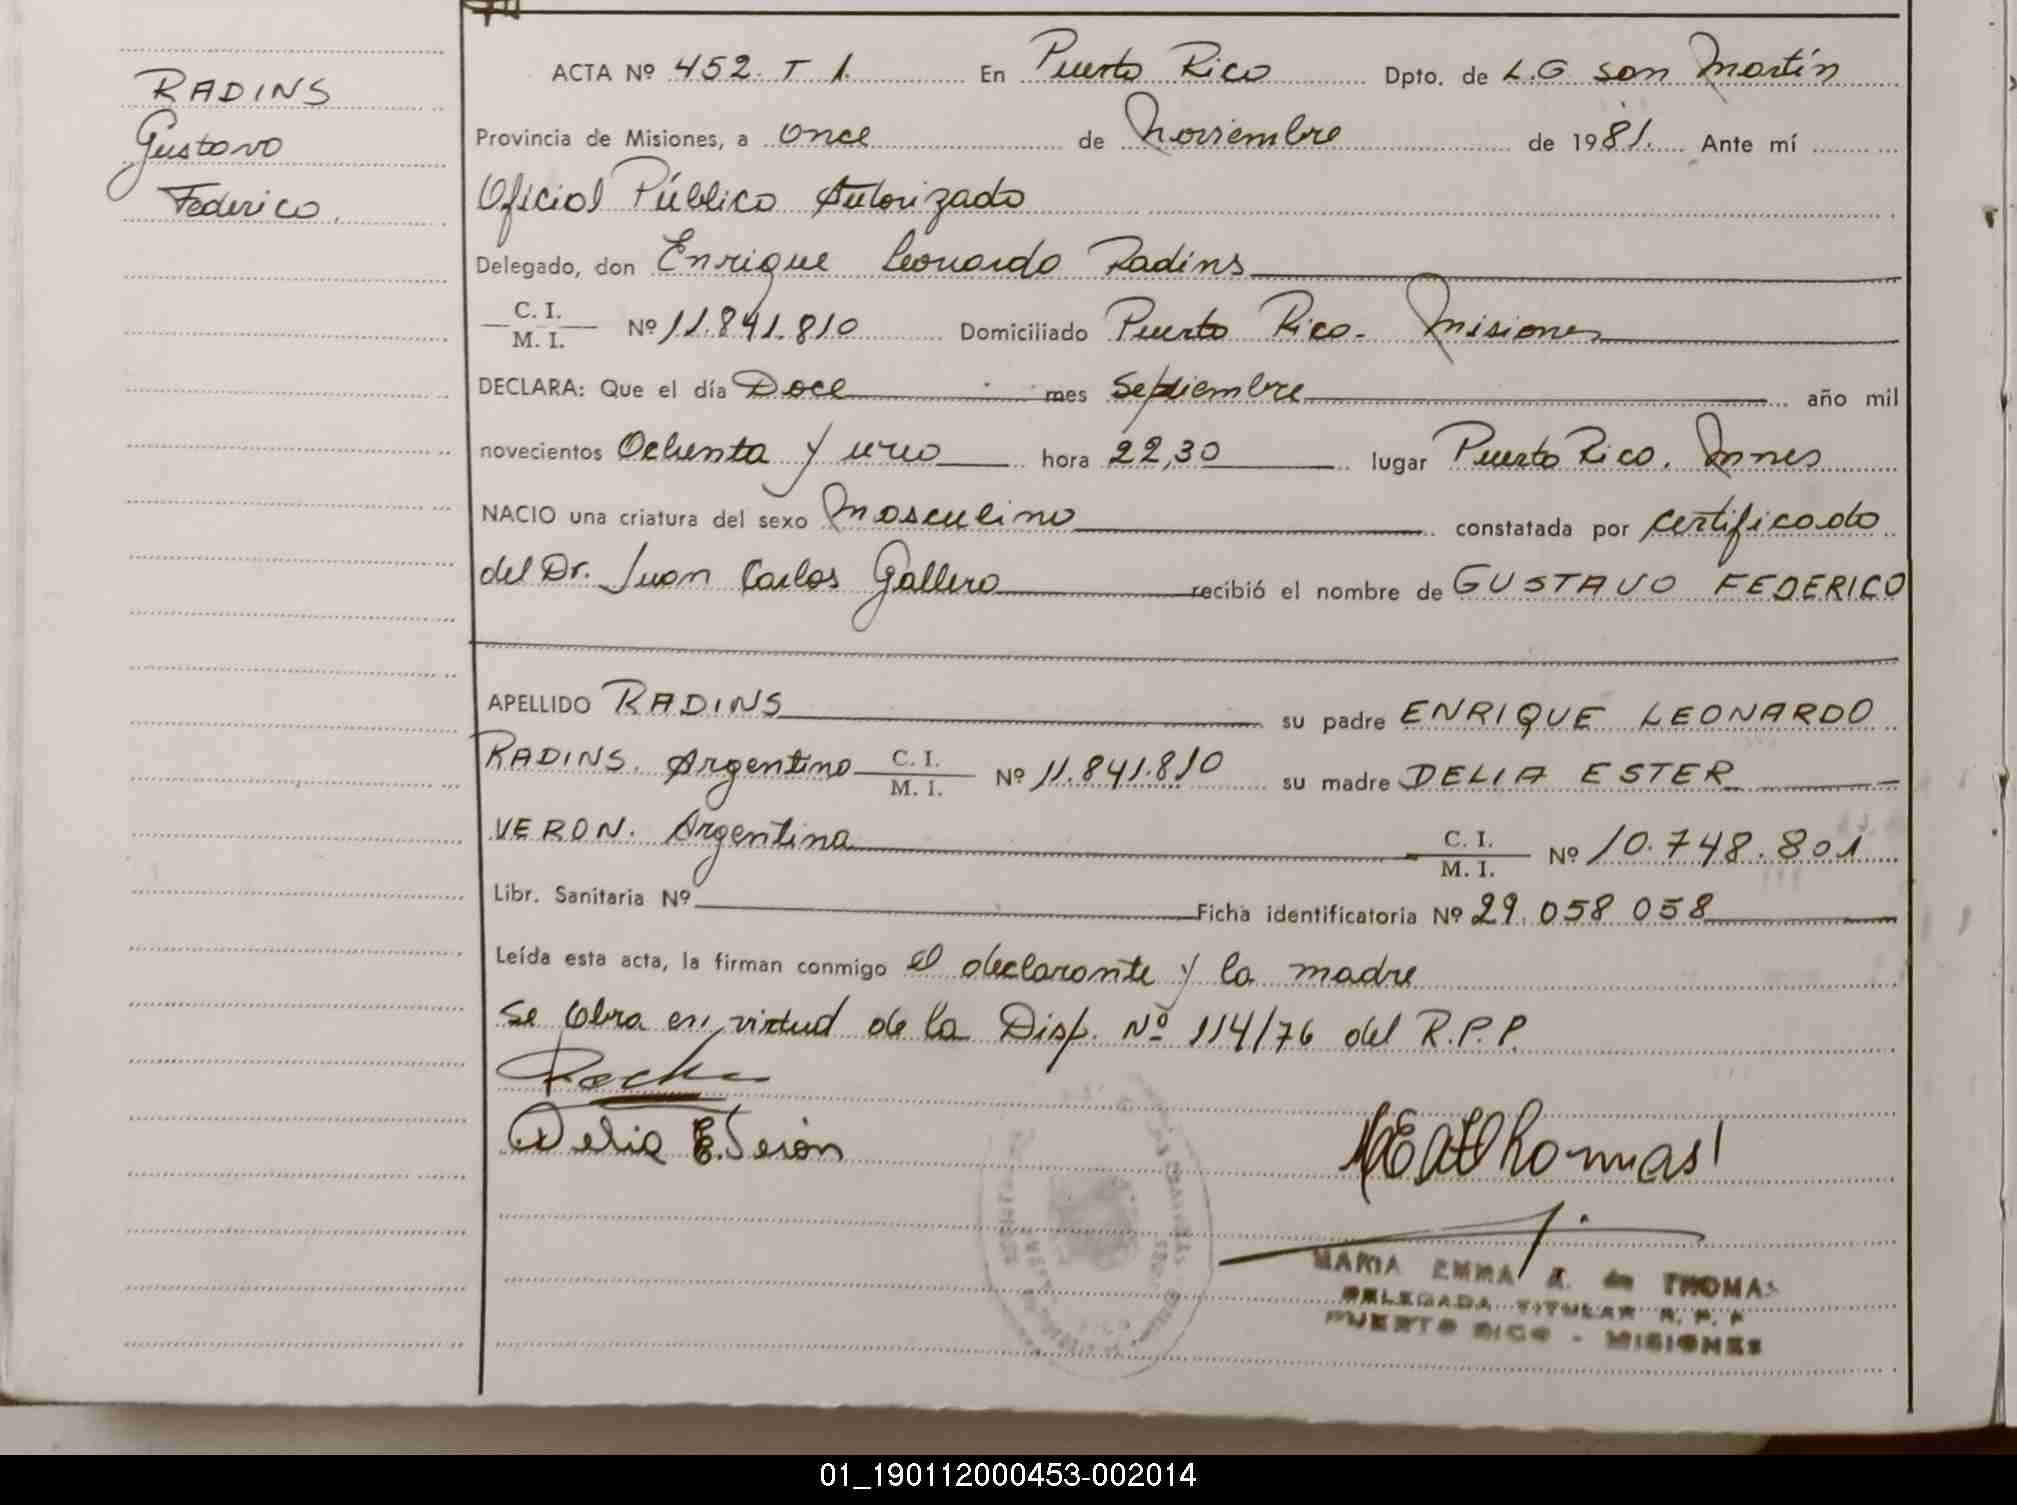 RADINS
Gustavo
Federico.
ACTA Nº 452. T 1. En Puerto Rico Dpto. de L.G San Martín
Provincia de Misiones, a once de Noviembre de 1981. Ante mí
Oficial Público Autorizado
Delegado, don Enrique Leonardo Radins
C. I.
M. I. Nº 11.841.810 Domiciliado Puerto Rico - Misiones
DECLARA: Que el día Doce mes Septiembre año mil
novecientos Ochenta y uno hora 22,30 lugar Puerto Rico. Mnes
NACIO una criatura del sexo Masculino constatada por certificado
del Dr. Juan Carlos Gallero recibió el nombre de GUSTAVO FEDERICO
APELLIDO RADINS su padre ENRIQUE LEONARDO
RADINS. Argentino C. I. M. I. Nº 11.841.810 su madre DELIA ESTER
VERON. Argentina C. I. M. I. Nº 10.748.801
Libr. Sanitaria Nº Ficha identificatoria Nº 29.058 058
Leída esta acta, la firman conmigo el declarante y la madre
Se labra en virtud de la Disp. Nº 114/76 del R.P.P.
Delia E. Verón
MEAThomas
MARIA EMMA A. de THOMAS
DELEGADA TITULAR R. P. P
PUERTO RICO - MISIONES
01_190112000453-002014